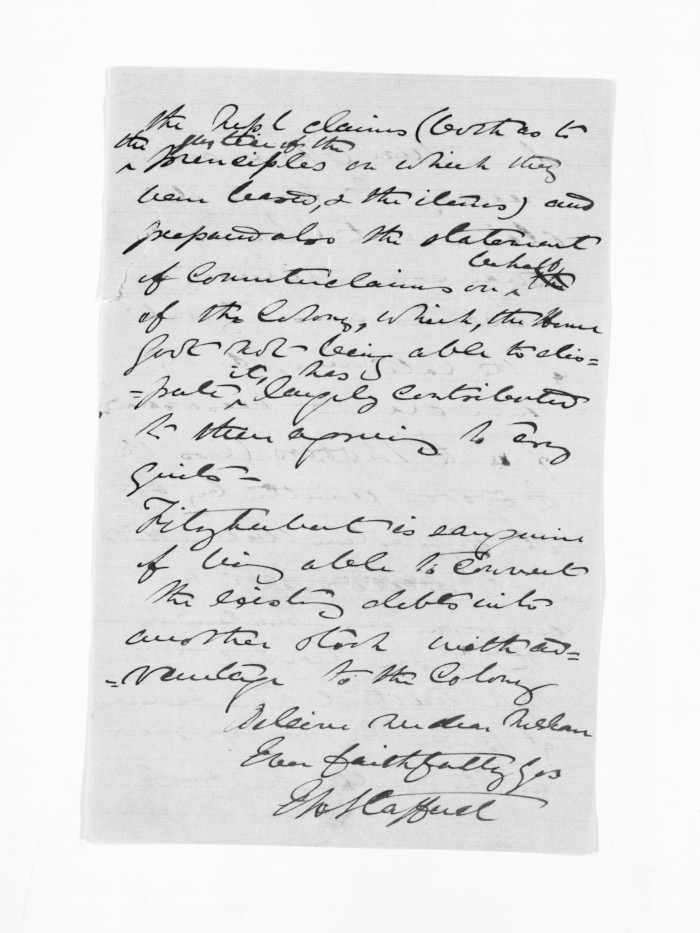 the Impl claims (both as to
the justice of the
principles on which they
were based, & the items) and
prepared also the statement
behalf
of Counterclaims on the
of the Colony, which, the Home
Govt not being able to dis=
it, has
=pute largely contributed
to their agreeing to cry
quits—
Fitzherbert is sanguine
of being able to convert
the existing debts into
another stock with ad=
=vantage to the Colony
Believe me dear McLean
Ever faithfully yrs
E W Stafford